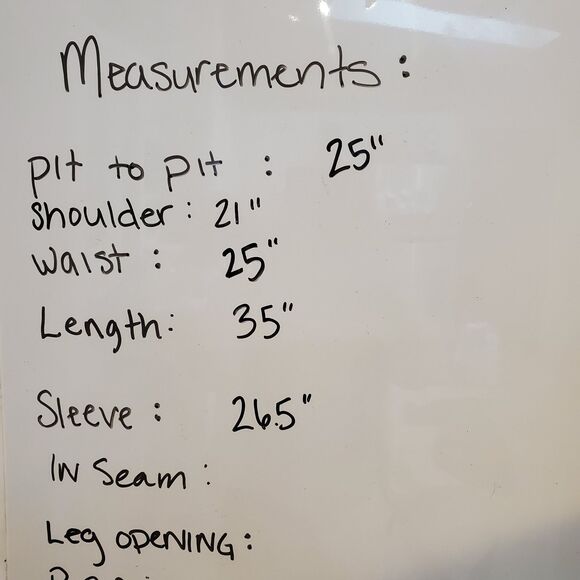 Measurements:
pit to pit : 25"
Shoulder: 21"
waist : 25"
Length: 35"
Sleeve : 26.5"
IN Seam :
Leg OPENING: